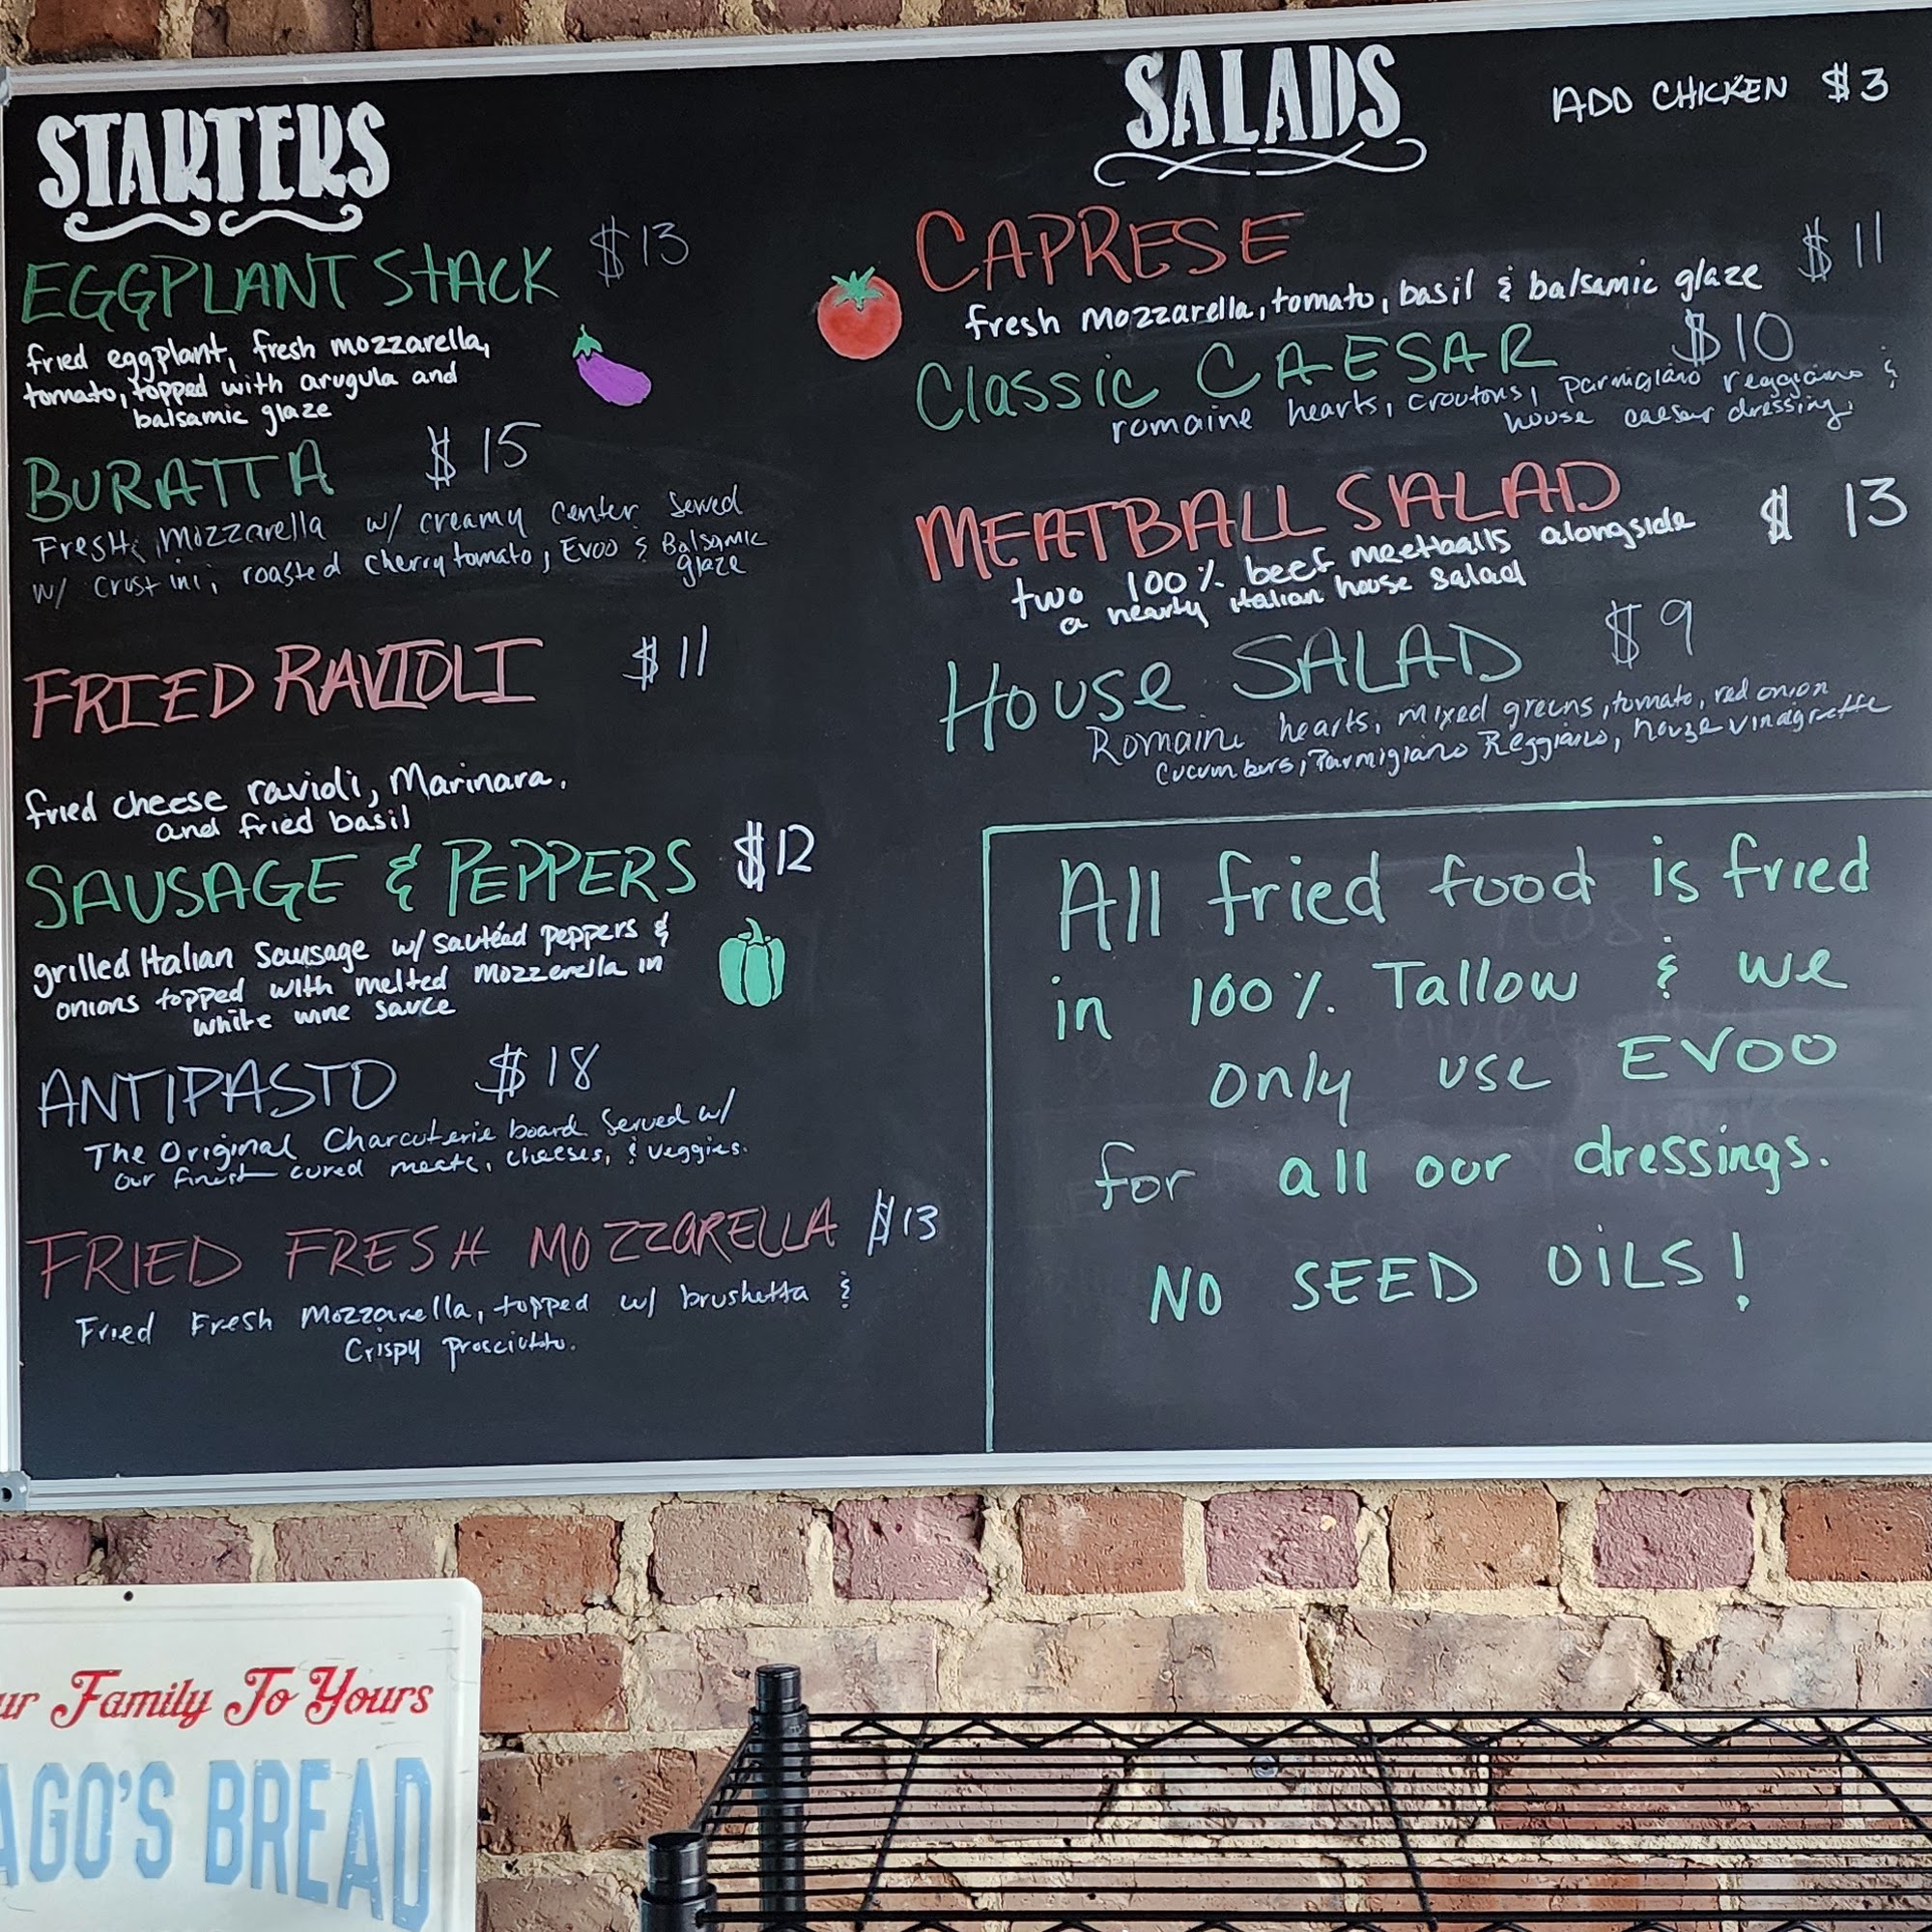 STARTERS
EGGPLANT STACK $13
fried eggplant, fresh mozzarella,
tomato, topped with arugula and
balsamic glaze
BURATTA $15
Fresh Mozzarella w/ creamy center served
w/ crustini, roasted cherry tomato, Evoo & Balsamic
glaze
FRIED RAVIOLI $11
fried cheese ravioli, Marinara.
and fried basil
SAUSAGE & PEPPERS $12
grilled Italian Sausage w/ sautéed peppers &
onions topped with melted mozzerella in
white wine sauce
ANTIPASTO $18
The Original Charcuterie board Served w/
our finest cured meats, cheeses, & veggies.
FRIED FRESH MOZZARELLA $13
Fried Fresh Mozzarella, topped w/ brushetta &
Crispy prosciutto.
SALADS
ADD CHICKEN $3
CAPRESE $11
fresh mozzarella, tomato, basil & balsamic glaze
Classic CAESAR $10
romaine hearts, croutons, parmigiano reggiano &
house caesar dressing
MEATBALL SALAD $13
two 100% beef meetballs alongside
a hearty italian house salad
HOUSE SALAD $9
Romaine hearts, mixed greens, tomato, red onion
cucumbers, Parmigiano Reggiano, house vinaigrette
All fried food is fried
in 100% Tallow & we
only use EVOO
for all our dressings.
NO SEED OILS!
ur Family To Yours
AGO'S BREAD